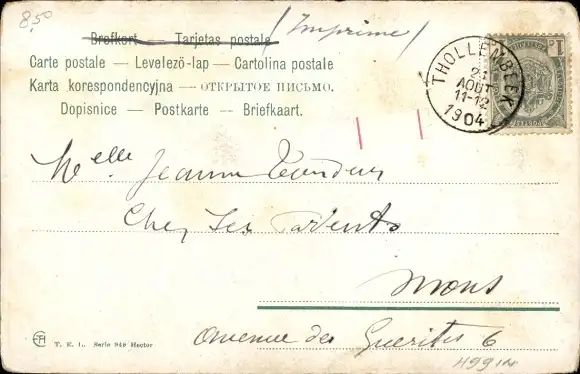 8,50
Brefkort — Tarjetas postale (Imprimé)
Carte postale — Levelező-lap — Cartolina postale
Karta korespondencyjna — ОТКРЫТОЕ ПИСЬМО.
Dopisnice — Postkarte — Briefkaart.
THOLLEMBEEK
21
AOUT
11-12
1904
Melle Jeanne
Chez Ses Parents
Mons
Avenue des Guérites 6
T. E. L. Serie 948 Hector